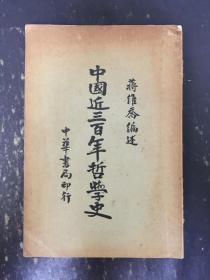 蒋維喬編述
中國近三百年哲學史
中華書局印行